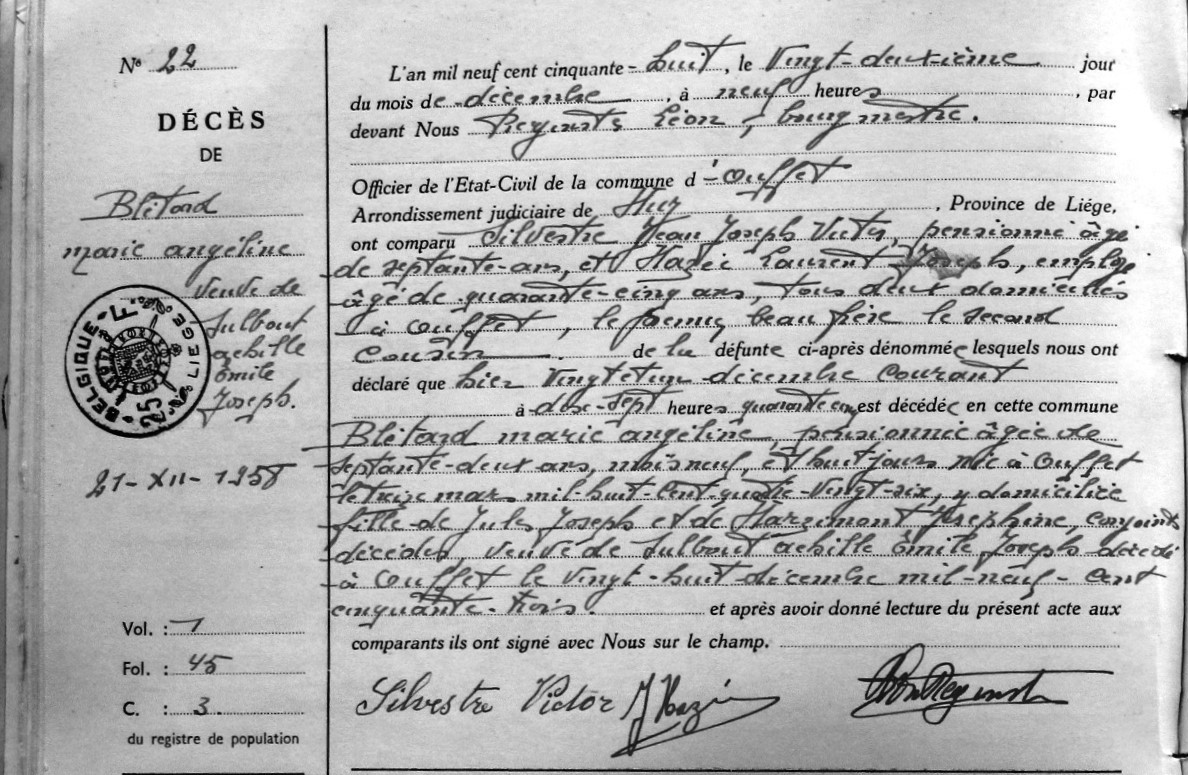 N° 22
DÉCÈS
DE
Blétard
marie angéline
veuve de
Julbout
achille
Emile
Joseph.
BELGIQUE F LIEGE 25
21-XII-1958
Vol. : 1
Fol. : 45
C. : 3
du registre de population
L'an mil neuf cent cinquante-huit, le Vingt-deuxième jour
du mois de décembre, à neuf heures, par
devant Nous Léon, bourgmestre.
Officier de l'Etat-Civil de la commune d'Ouffet
Arrondissement judiciaire de Huy, Province de Liége,
ont comparu Silvestre Jean Joseph Victor, pensionné âgé
de septante-ans, et Hazée Laurent Joseph, employé
âgé de quarante-cinq ans, tous deux domiciliés
à Ouffet, le premier beau frère le second
Cousin de la défunte ci-après dénommée lesquels nous ont
déclaré que hier Vingt et un décembre Courant
à dix-sept heures quarante cinq est décédée en cette commune
Blétard marie angéline, pensionnée âgée de
septante-deux ans, mois neuf, et huit-jours née à Ouffet
le treize mars mil-huit-cent-quatre-vingt-six, y domiciliée
fille de Jules Joseph et de Harzimont Joséphine, conjoints
décédés, veuve de Julbout achille Emile Joseph décédé
à Ouffet le vingt-huit-décembre mil-neuf-cent
cinquante-trois. et après avoir donné lecture du présent acte aux
comparants ils ont signé avec Nous sur le champ.
Silvestre Victor J Hazée